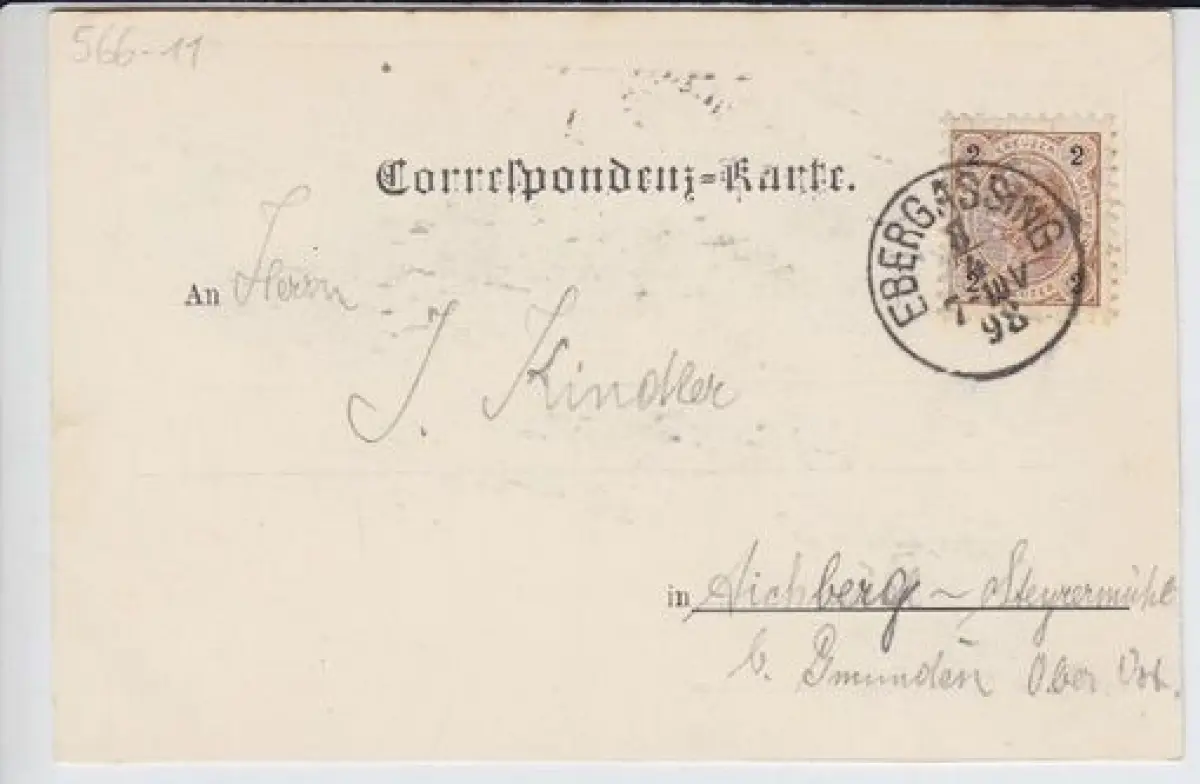 566-11
Correspondenz-Karte.
2 KREUZER 2
EBERGASSING
98
2 2
An Herrn
J. Kindler
in Aichberg ~ Steyrermühl
b. Gmunden Ober Öst.